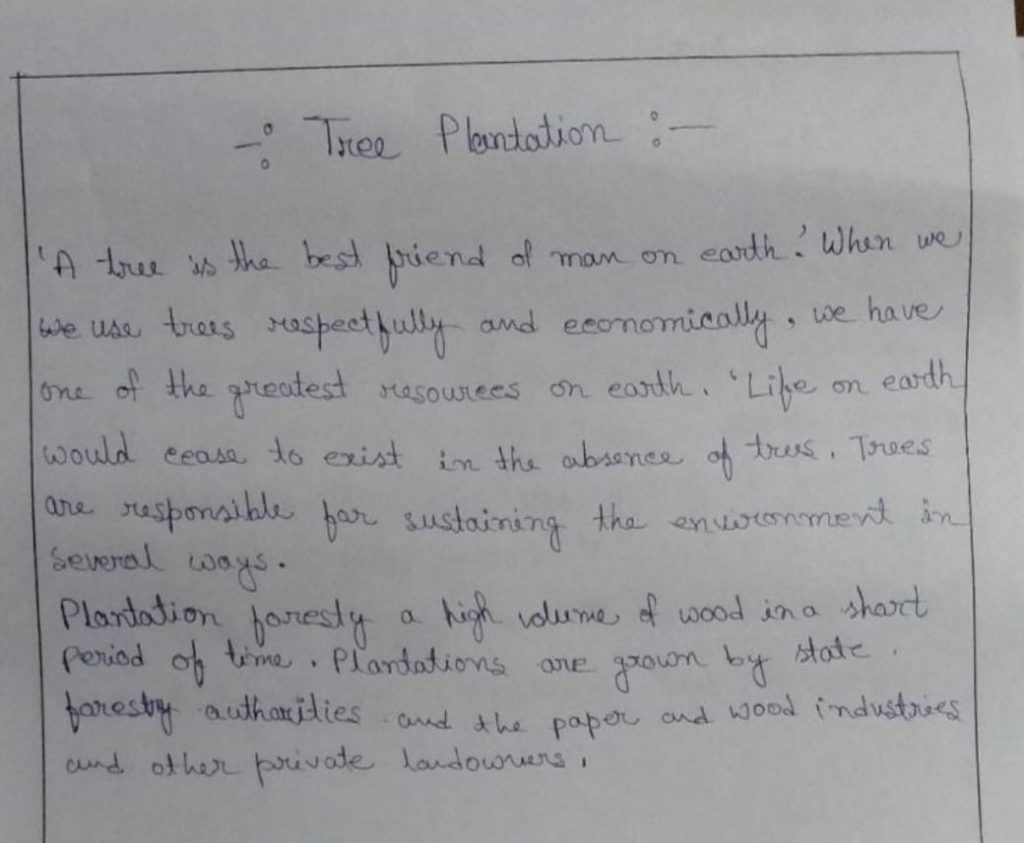 -: Tree Plantation :-
'A tree is the best friend of man on earth.' When we
we use trees respectfully and economically, we have
one of the greatest resources on earth. 'Life on earth
would cease to exist in the absence of trees. Trees
are responsible for sustaining the environment in
several ways.
Plantation foresty a high volume of wood in a short
period of time. Plantations are grown by state.
foresty authorities and the paper and wood industries
and other private landowners.